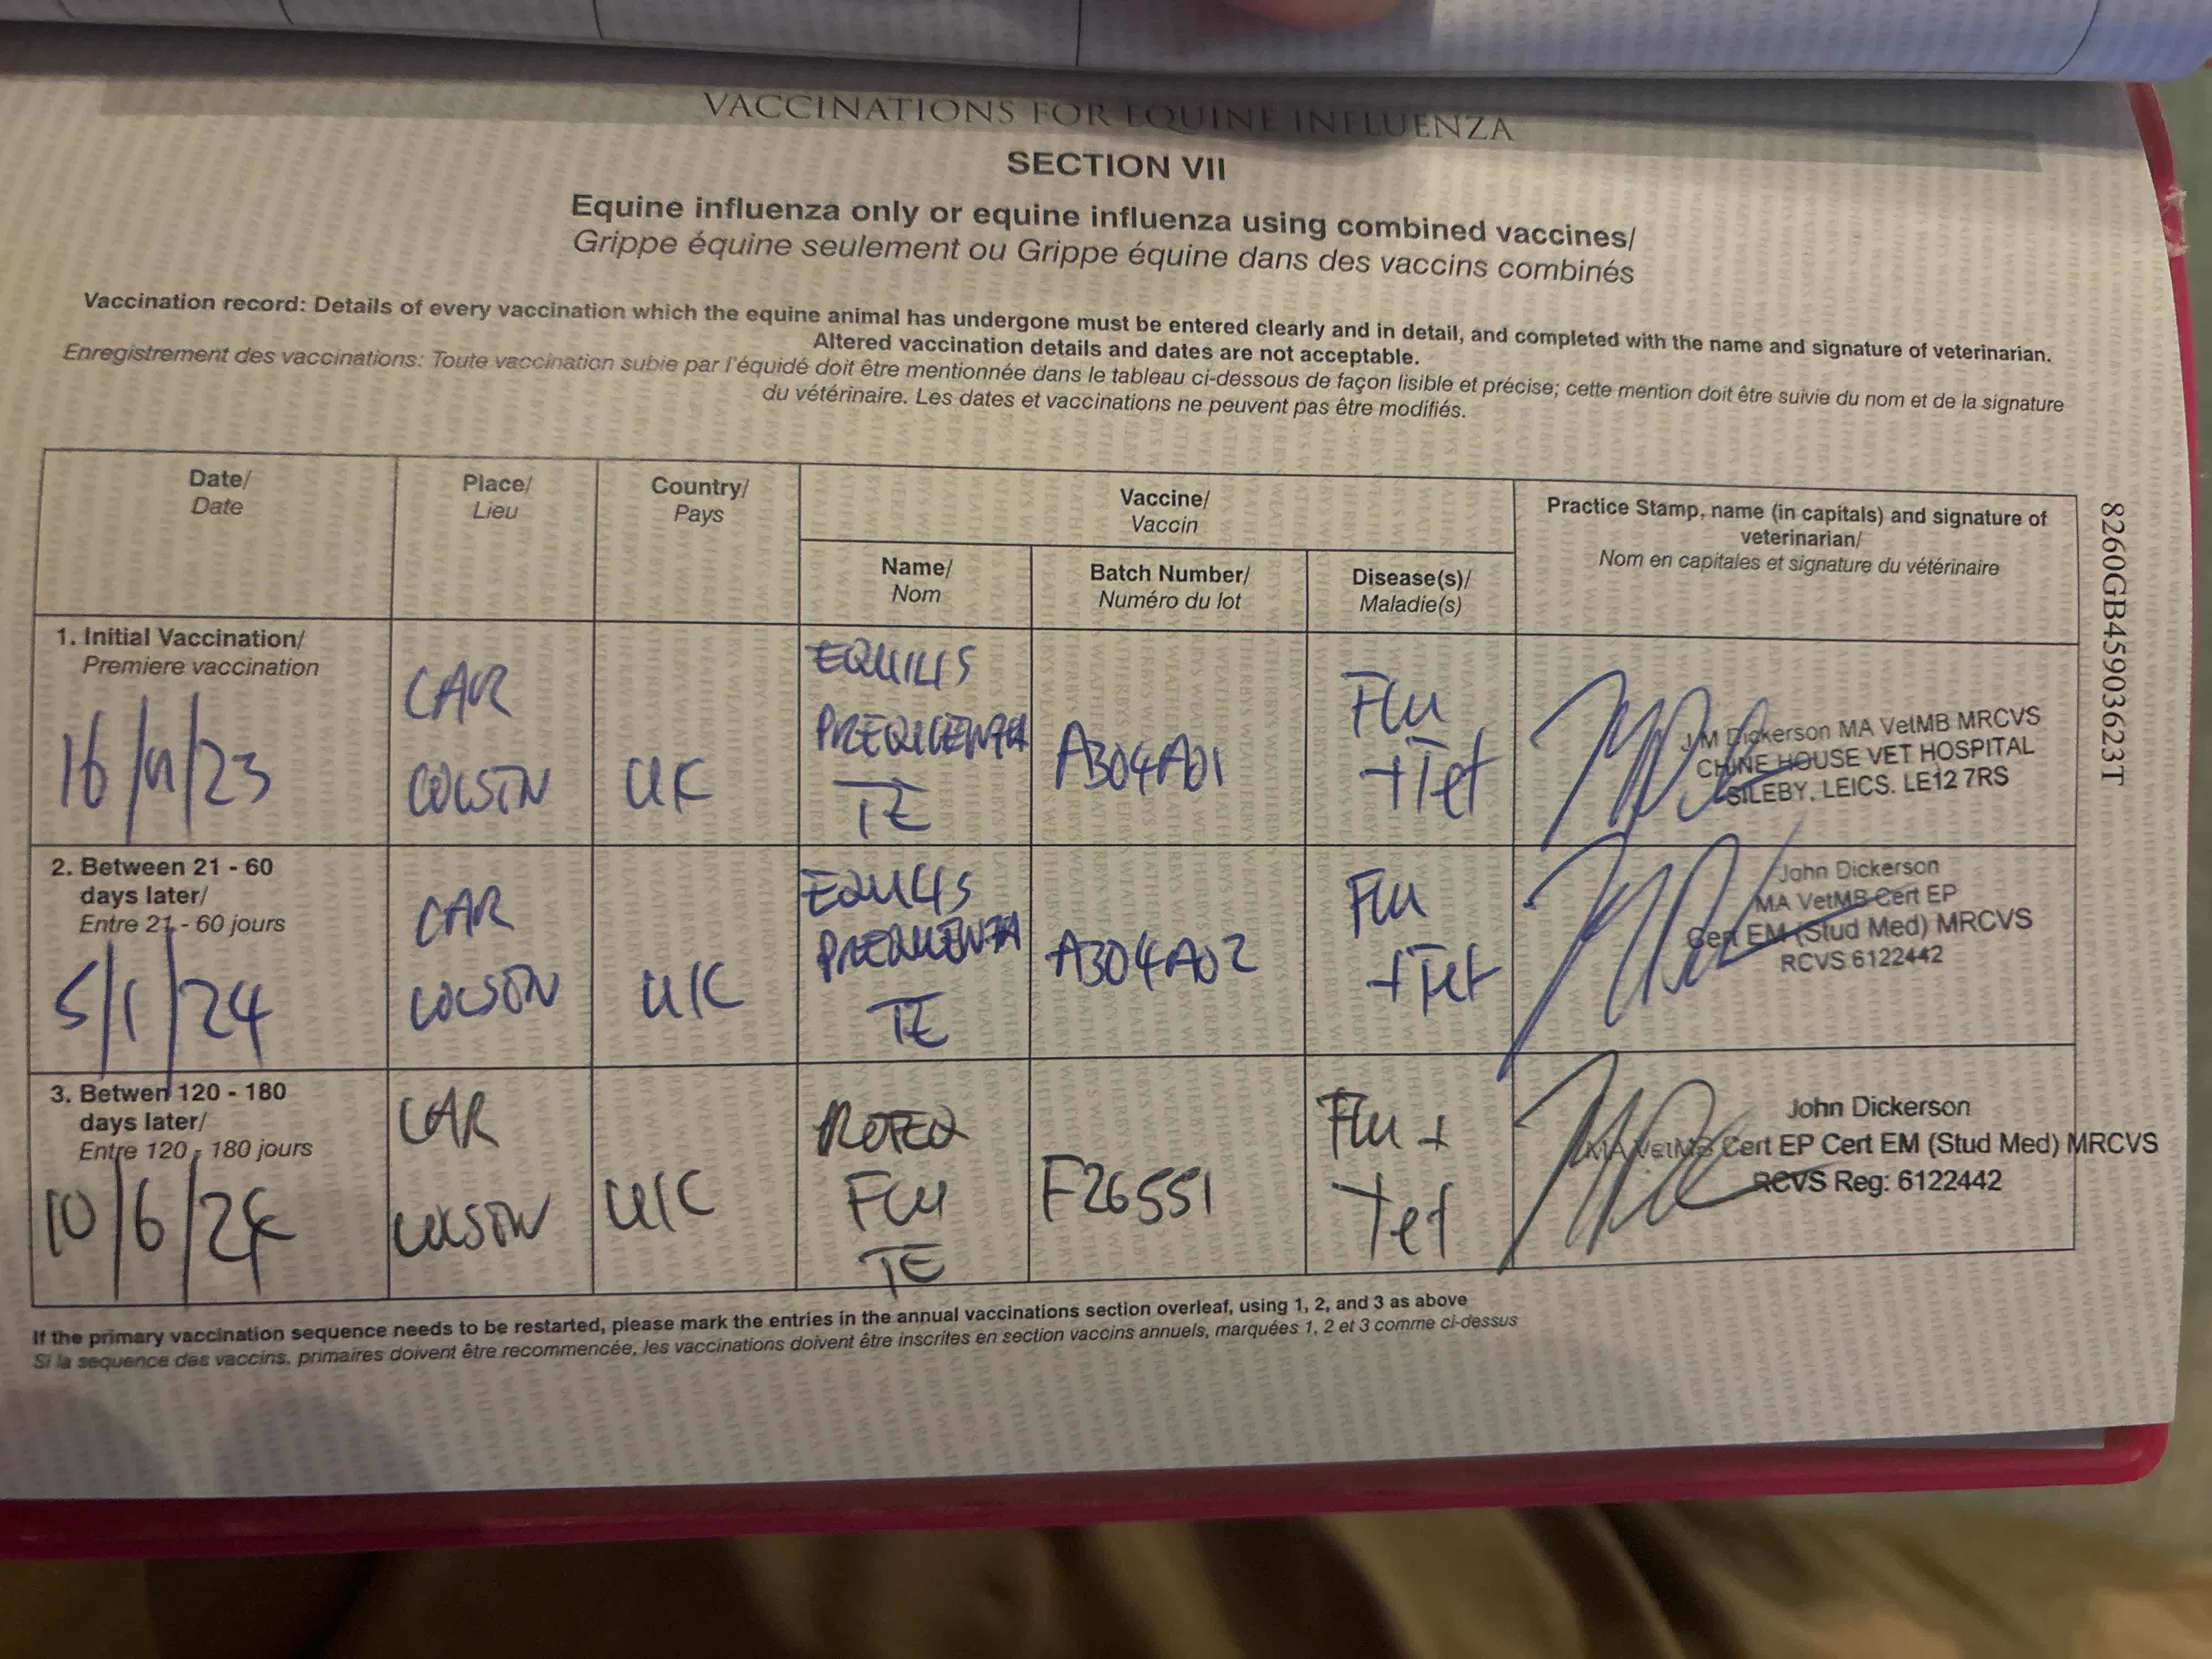 VACCINATIONS FOR EQUINE INFLUENZA
SECTION VII
Equine influenza only or equine influenza using combined vaccines/
Grippe équine seulement ou Grippe équine dans des vaccins combinés
Vaccination record: Details of every vaccination which the equine animal has undergone must be entered clearly and in detail, and completed with the name and signature of veterinarian.
Altered vaccination details and dates are not acceptable.
Enregistrement des vaccinations: Toute vaccination subie par l'équidé doit être mentionnée dans le tableau ci-dessous de façon lisible et précise; cette mention doit être suivie du nom et de la signature
du vétérinaire. Les dates et vaccinations ne peuvent pas être modifiés.
Date/
Date
Place/
Lieu
Country/
Pays
Vaccine/
Vaccin
Name/
Nom
Batch Number/
Numéro du lot
Disease(s)/
Maladie(s)
Practice Stamp, name (in capitals) and signature of
veterinarian/
Nom en capitales et signature du vétérinaire
1. Initial Vaccination/
Premiere vaccination
16/11/23
CAR
COLSTON
UK
EQUILIS
PREQUENZA
TE
A304A01
Flu
+Tet
J M Dickerson MA VetMB MRCVS
CHINE HOUSE VET HOSPITAL
SILEBY, LEICS. LE12 7RS
2. Between 21 - 60
days later/
Entre 21 - 60 jours
5/1/24
CAR
COLSTON
UK
EQUILIS
PREQUENZA
TE
A304A02
Flu
+Tet
John Dickerson
MA VetMB Cert EP
Cert EM (Stud Med) MRCVS
RCVS 6122442
3. Betwen 120 - 180
days later/
Entre 120 - 180 jours
10/6/24
CAR
COLSTON
UK
PROTEQ
FLU
TE
F26551
Flu +
Tet
John Dickerson
MA VetMB Cert EP Cert EM (Stud Med) MRCVS
RCVS Reg: 6122442
If the primary vaccination sequence needs to be restarted, please mark the entries in the annual vaccinations section overleaf, using 1, 2, and 3 as above
Si la sequence des vaccins, primaires doivent être recommencée, les vaccinations doivent être inscrites en section vaccins annuels, marquées 1, 2 et 3 comme ci-dessus
8260GB45903623T